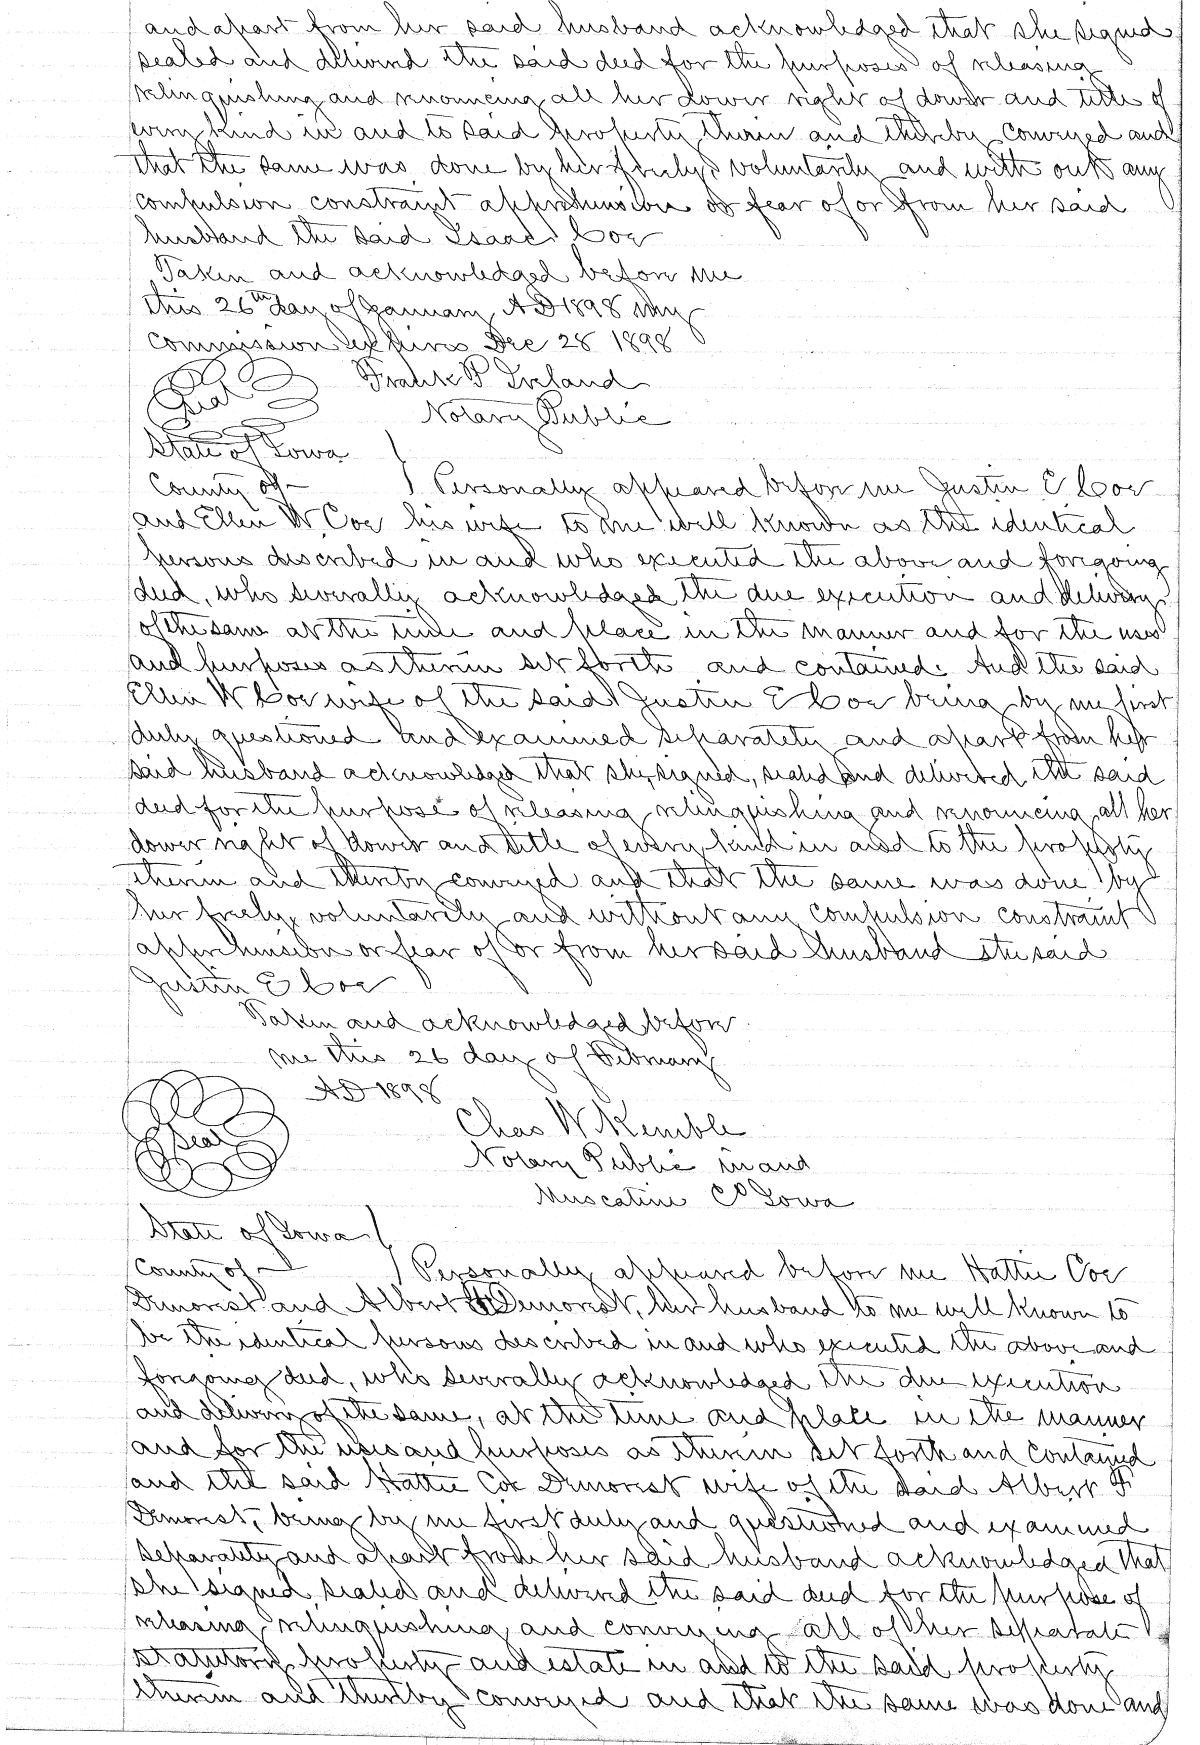 and apart from her said husband acknowledged that she signed
sealed and delivered the said deed for the purposes of releasing
relinquishing and renouncing all her dower right of dower and title of
every kind in and to said property therein and thereby conveyed and
that the same was done by her freely, voluntarily and with out any
compulsion constraint apprehension or fear of or from her said
husband the said Isaac Coe
Taken and acknowledged before me
this 26th day of January AD 1898 my
commission expires Dec 28 1898
Seal Frank P Ireland
Notary Public
State of Iowa
County of Personally appeared before me Justin E Coe
and Ellen W Coe his wife to me well known as the identical
persons described in and who executed the above and foregoing
deed, who severally acknowledged the due execution and delivery
of the same at the time and place in the manner and for the uses
and purposes as therein set forth and contained. And the said
Ellen W Coe wife of the said Justin E Coe being by me first
duly questioned and examined separately and apart from her
said husband acknowledged that she, signed, sealed and delivered the said
deed for the purpose of releasing relinquishing and renouncing all her
dower right of dower and title of every kind in and to the property
therein and thereby conveyed and that the same was done by
her freely, voluntarily and without any compulsion constraint
apprehension or fear of or from her said husband the said
Justin E Coe
Taken and acknowledged before
me this 26 day of February
AD 1898
Seal Chas W Kemble
Notary Public in and
Muscatine Co Iowa
State of Iowa
County of Personally appeared before me Hattie Coe
Demorest and Albert F Demorest, her husband to me well known to
be the identical persons described in and who executed the above and
foregoing deed, who severally acknowledged the due execution
and delivery of the same, at the time and place in the manner
and for the uses and purposes as therein set forth and contained
and the said Hattie Coe Demorest wife of the said Albert F
Demorest, being by me first duly and questioned and examined
separately and apart from her said husband acknowledged that
she signed, sealed and delivered the said deed for the purpose of
releasing, relinquishing and conveying all of her separate
statutory property and estate in and to the said property
therein and thereby conveyed and that the same was done and